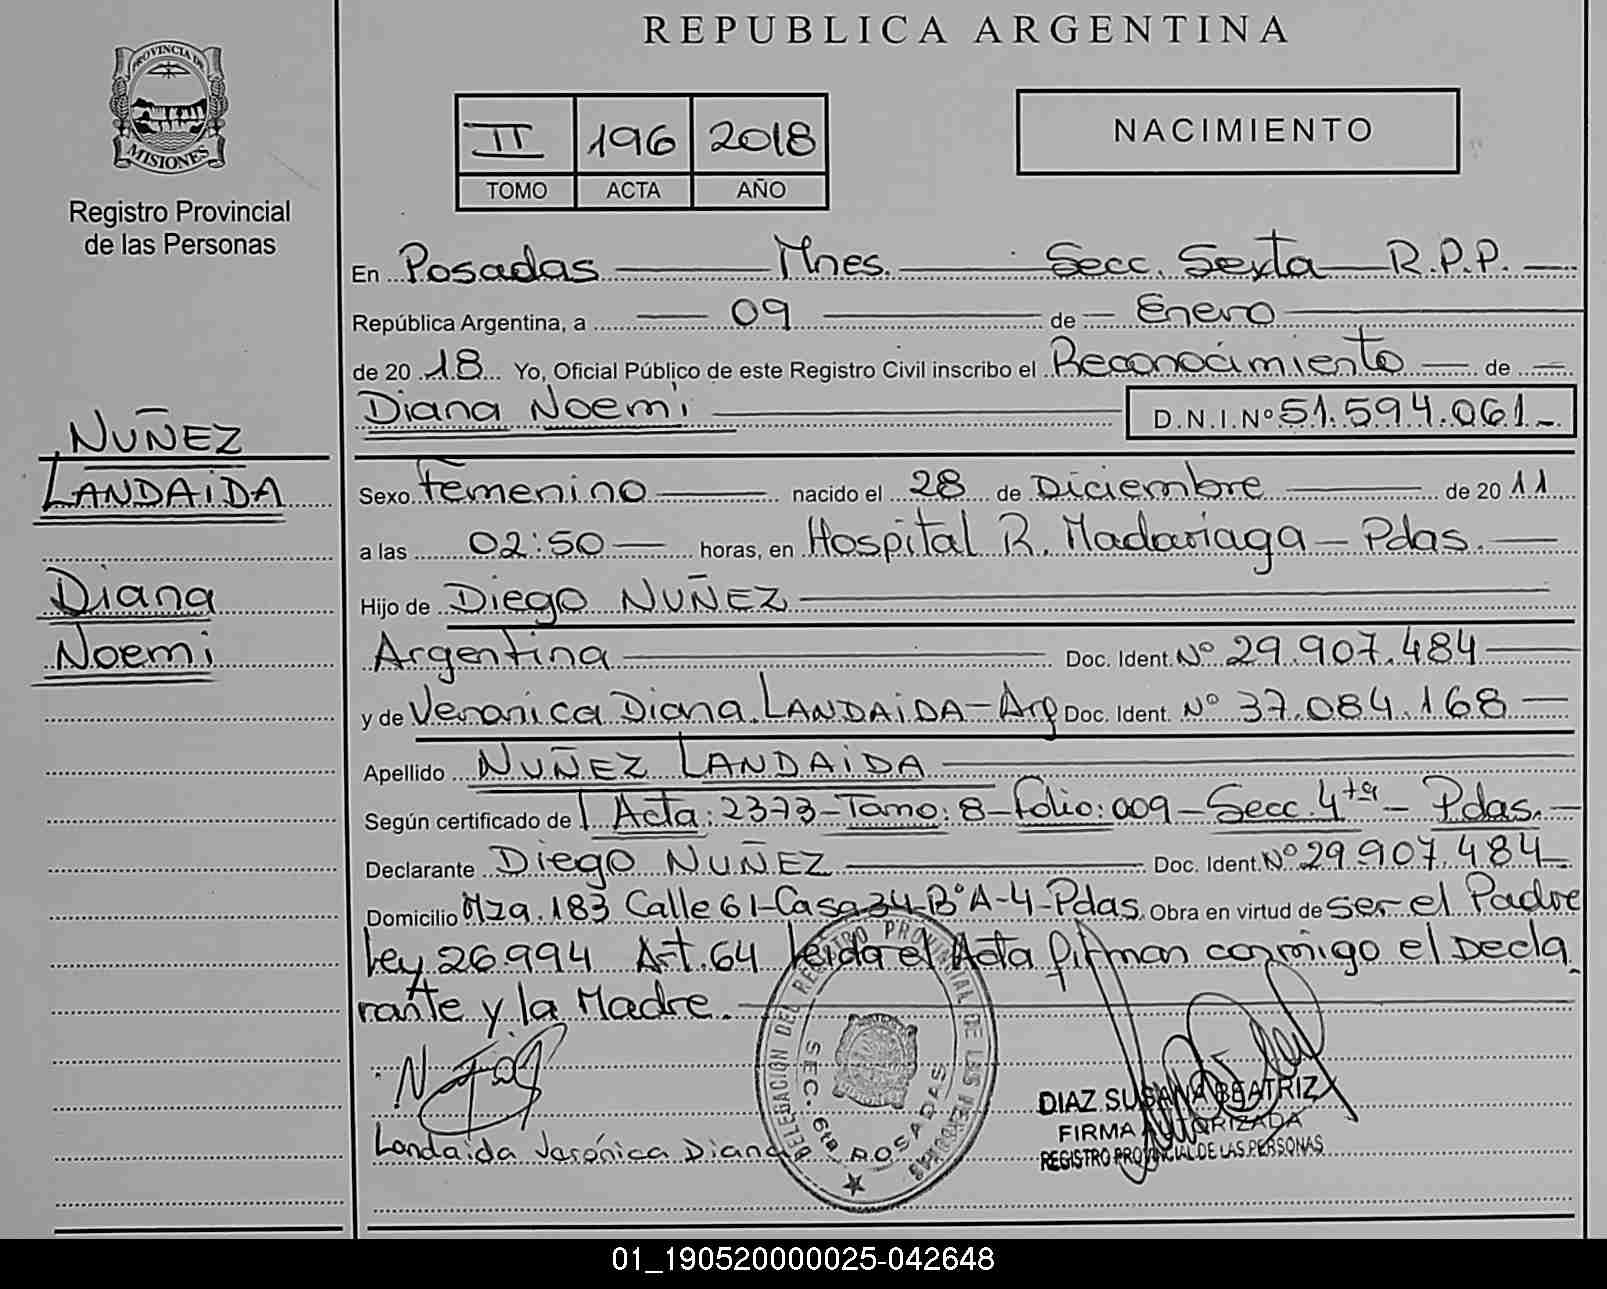 REPUBLICA ARGENTINA
PROVINCIA DE
MISIONES
Registro Provincial
de las Personas
II 196 2018
TOMO ACTA AÑO
NACIMIENTO
En Posadas Mnes. Secc. Sexta R.P.P.
República Argentina, a 09 de Enero
de 2018 Yo, Oficial Público de este Registro Civil inscribo el Reconocimiento de
Diana Noemi D.N.I. Nº 51.594.061
NUÑEZ
LANDAiDA
Diana
Noemi
Sexo Femenino nacido el 28 de Diciembre de 2011
a las 02:50 horas, en Hospital R. Madariaga - Pdas.
Hijo de Diego NUÑEZ
Argentina Doc. Ident. Nº 29.907.484
y de Veronica Diana LANDAiDA - Arg Doc. Ident. Nº 37.084.168
Apellido NUÑEZ LANDAiDA
Según certificado de Acta: 2373 - Tomo: 8 - Folio: 009 - Secc. 4ta - Pdas.
Declarante Diego NUÑEZ Doc. Ident. Nº 29.907.484
Domicilio Mza. 183 Calle 61 - Casa 34 - Bº A-4 - Pdas. Obra en virtud de ser el Padre
Ley 26.994 Art. 64 Leida el Acta firman conmigo el Decla
rante y la Madre.
DELEGACIÓN DEL REGISTRO PROVINCIAL DE LAS PERSONAS
SEC. 6ta POSADAS
Landaida Verónica Diana
DIAZ SUSANA BEATRIZ
FIRMA AUTORIZADA
REGISTRO PROVINCIAL DE LAS PERSONAS
01_190520000025-042648